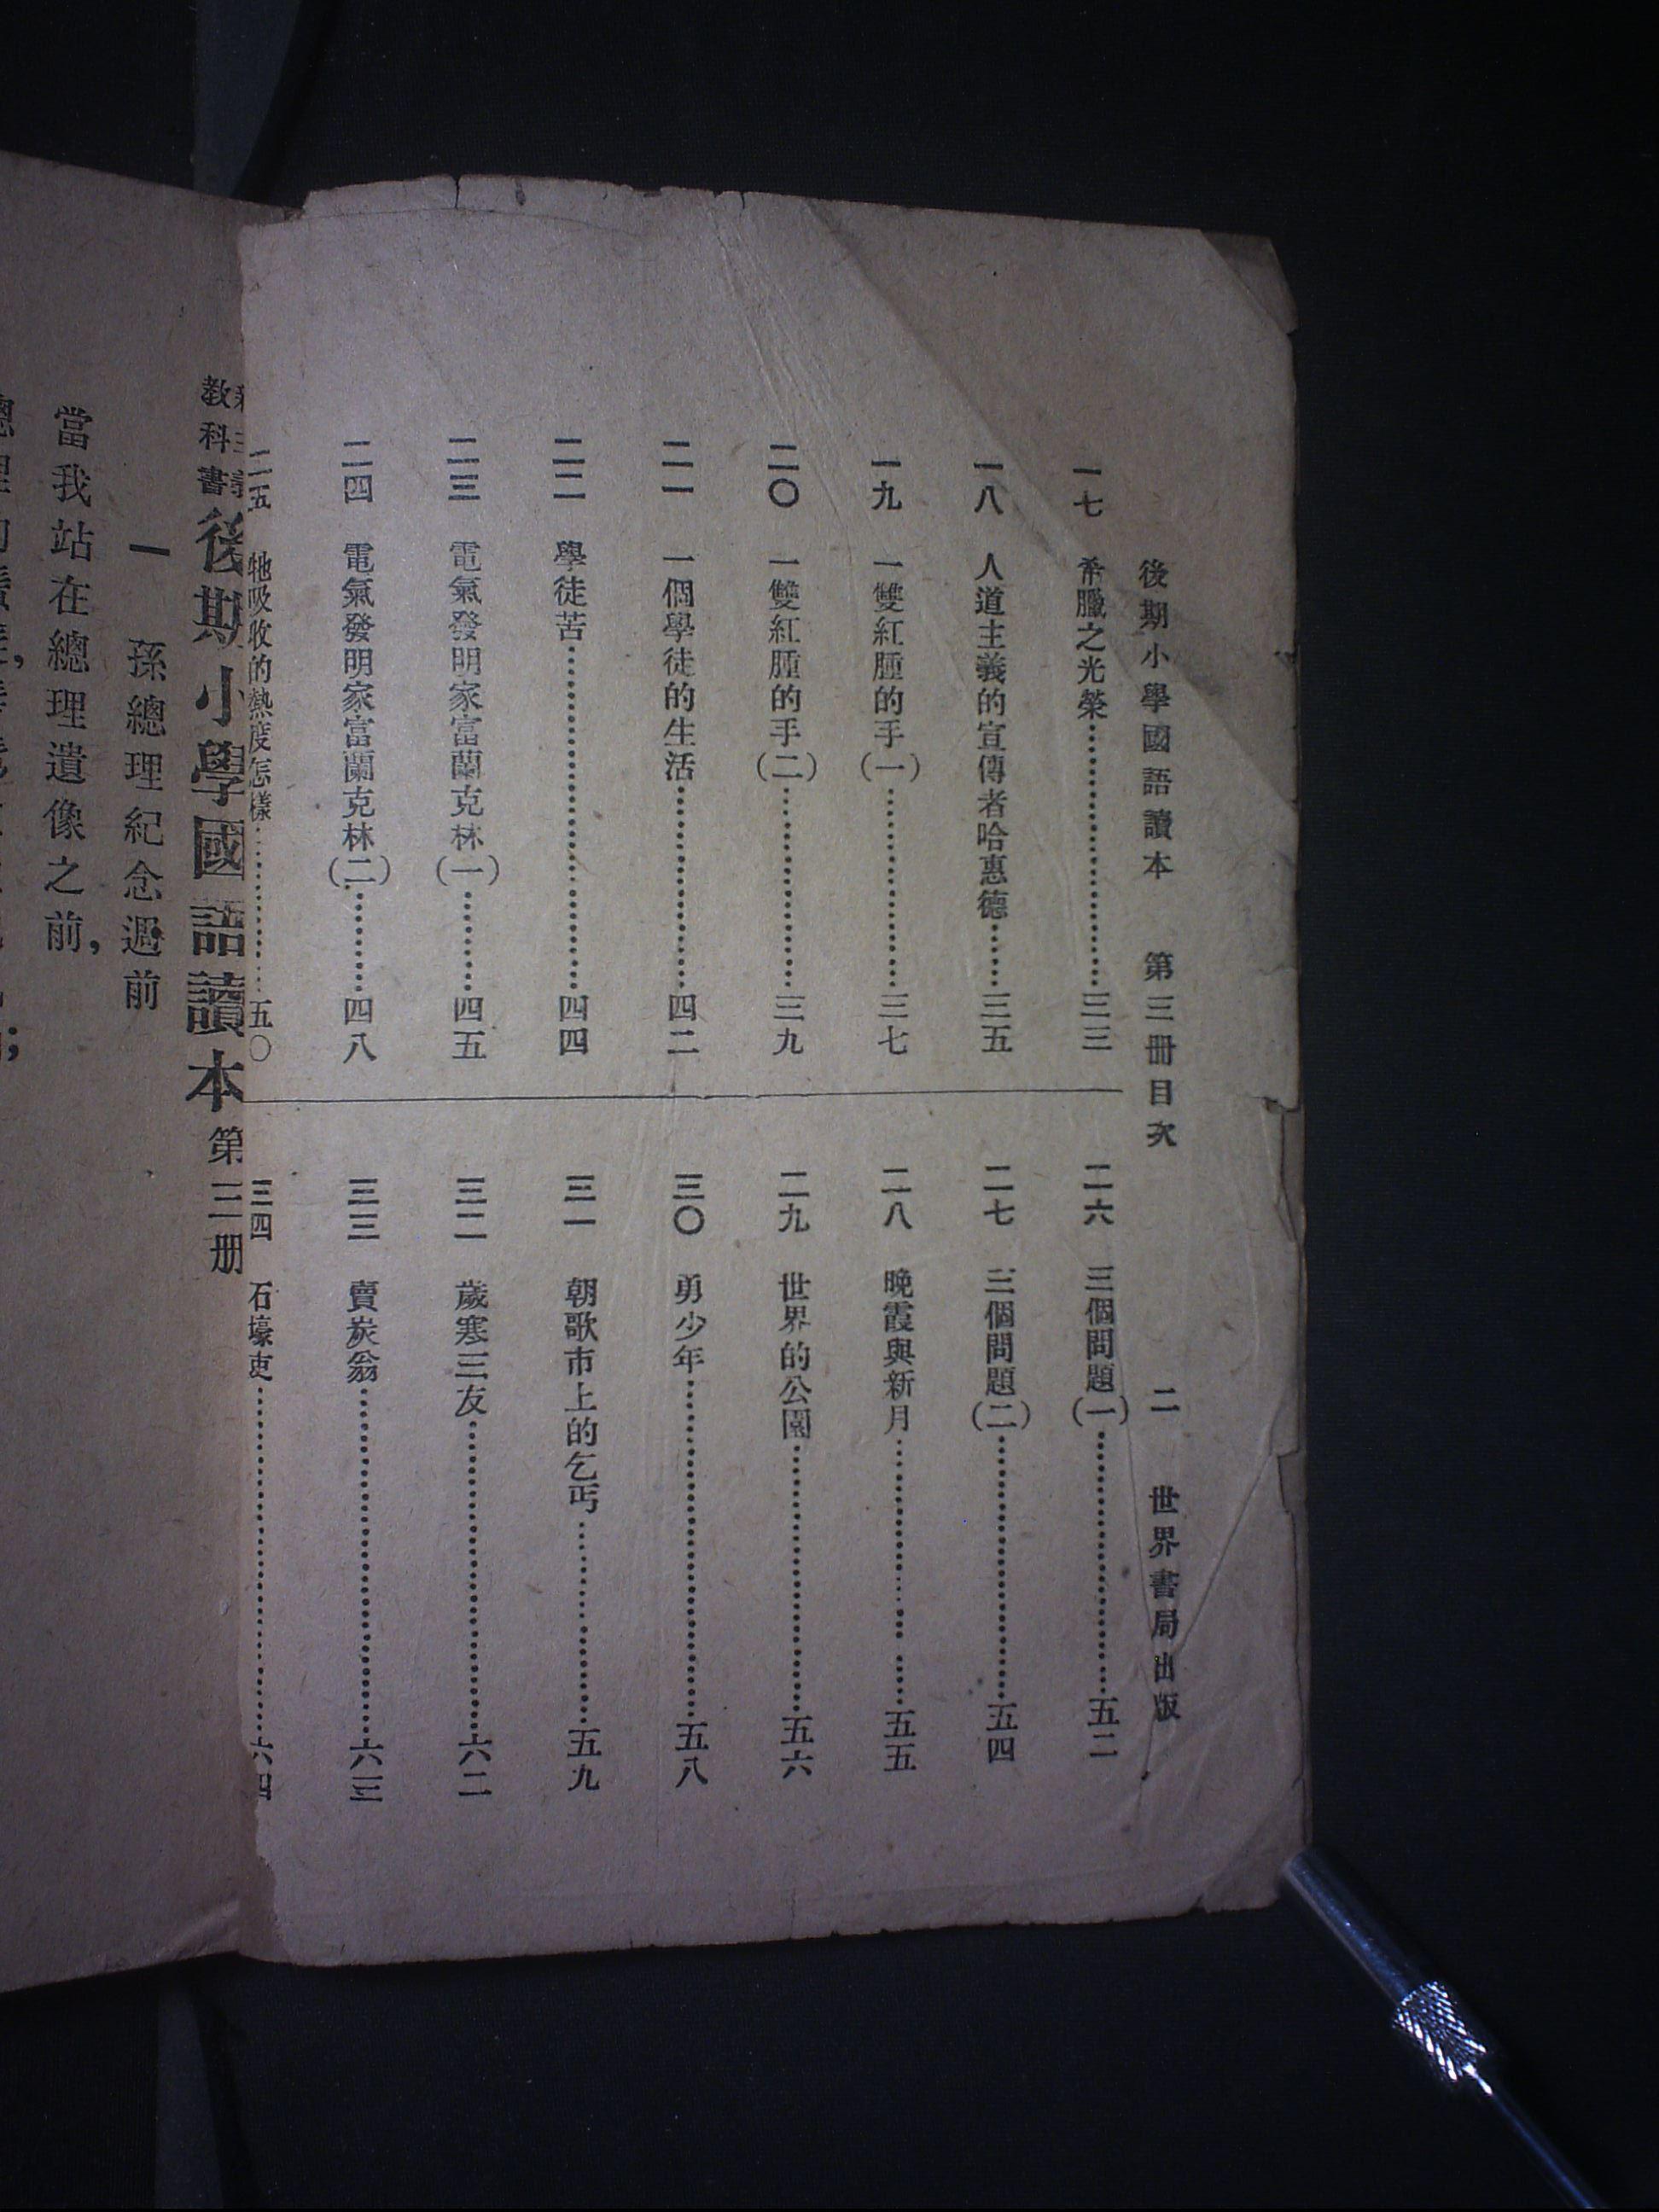 後期小學國語讀本 第三冊目次 二 世界書局出版
一七 希臘之光榮……………………三三
一八 人道主義的宣傳者哈惠德……三五
一九 一雙紅腫的手(一)……………三七
二〇 一雙紅腫的手(二)……………三九
二一 一個學徒的生活………………四二
二二 學徒苦…………………………四四
二三 電氣發明家富蘭克林(一)……四五
二四 電氣發明家富蘭克林(二)……四八
二五 牠吸收的熱度怎樣……………五〇
二六 三個問題(一)…………………五二
二七 三個問題(二)…………………五四
二八 晚霞與新月……………………五五
二九 世界的公園……………………五六
三〇 勇少年…………………………五八
三一 朝歌市上的乞丐………………五九
三二 歲寒三友………………………六二
三三 賣炭翁…………………………六三
三四 石壕吏…………………………六四
教科書 後期小學國語讀本 第三册
一 孫總理紀念週前
當我站在總理遺像之前,